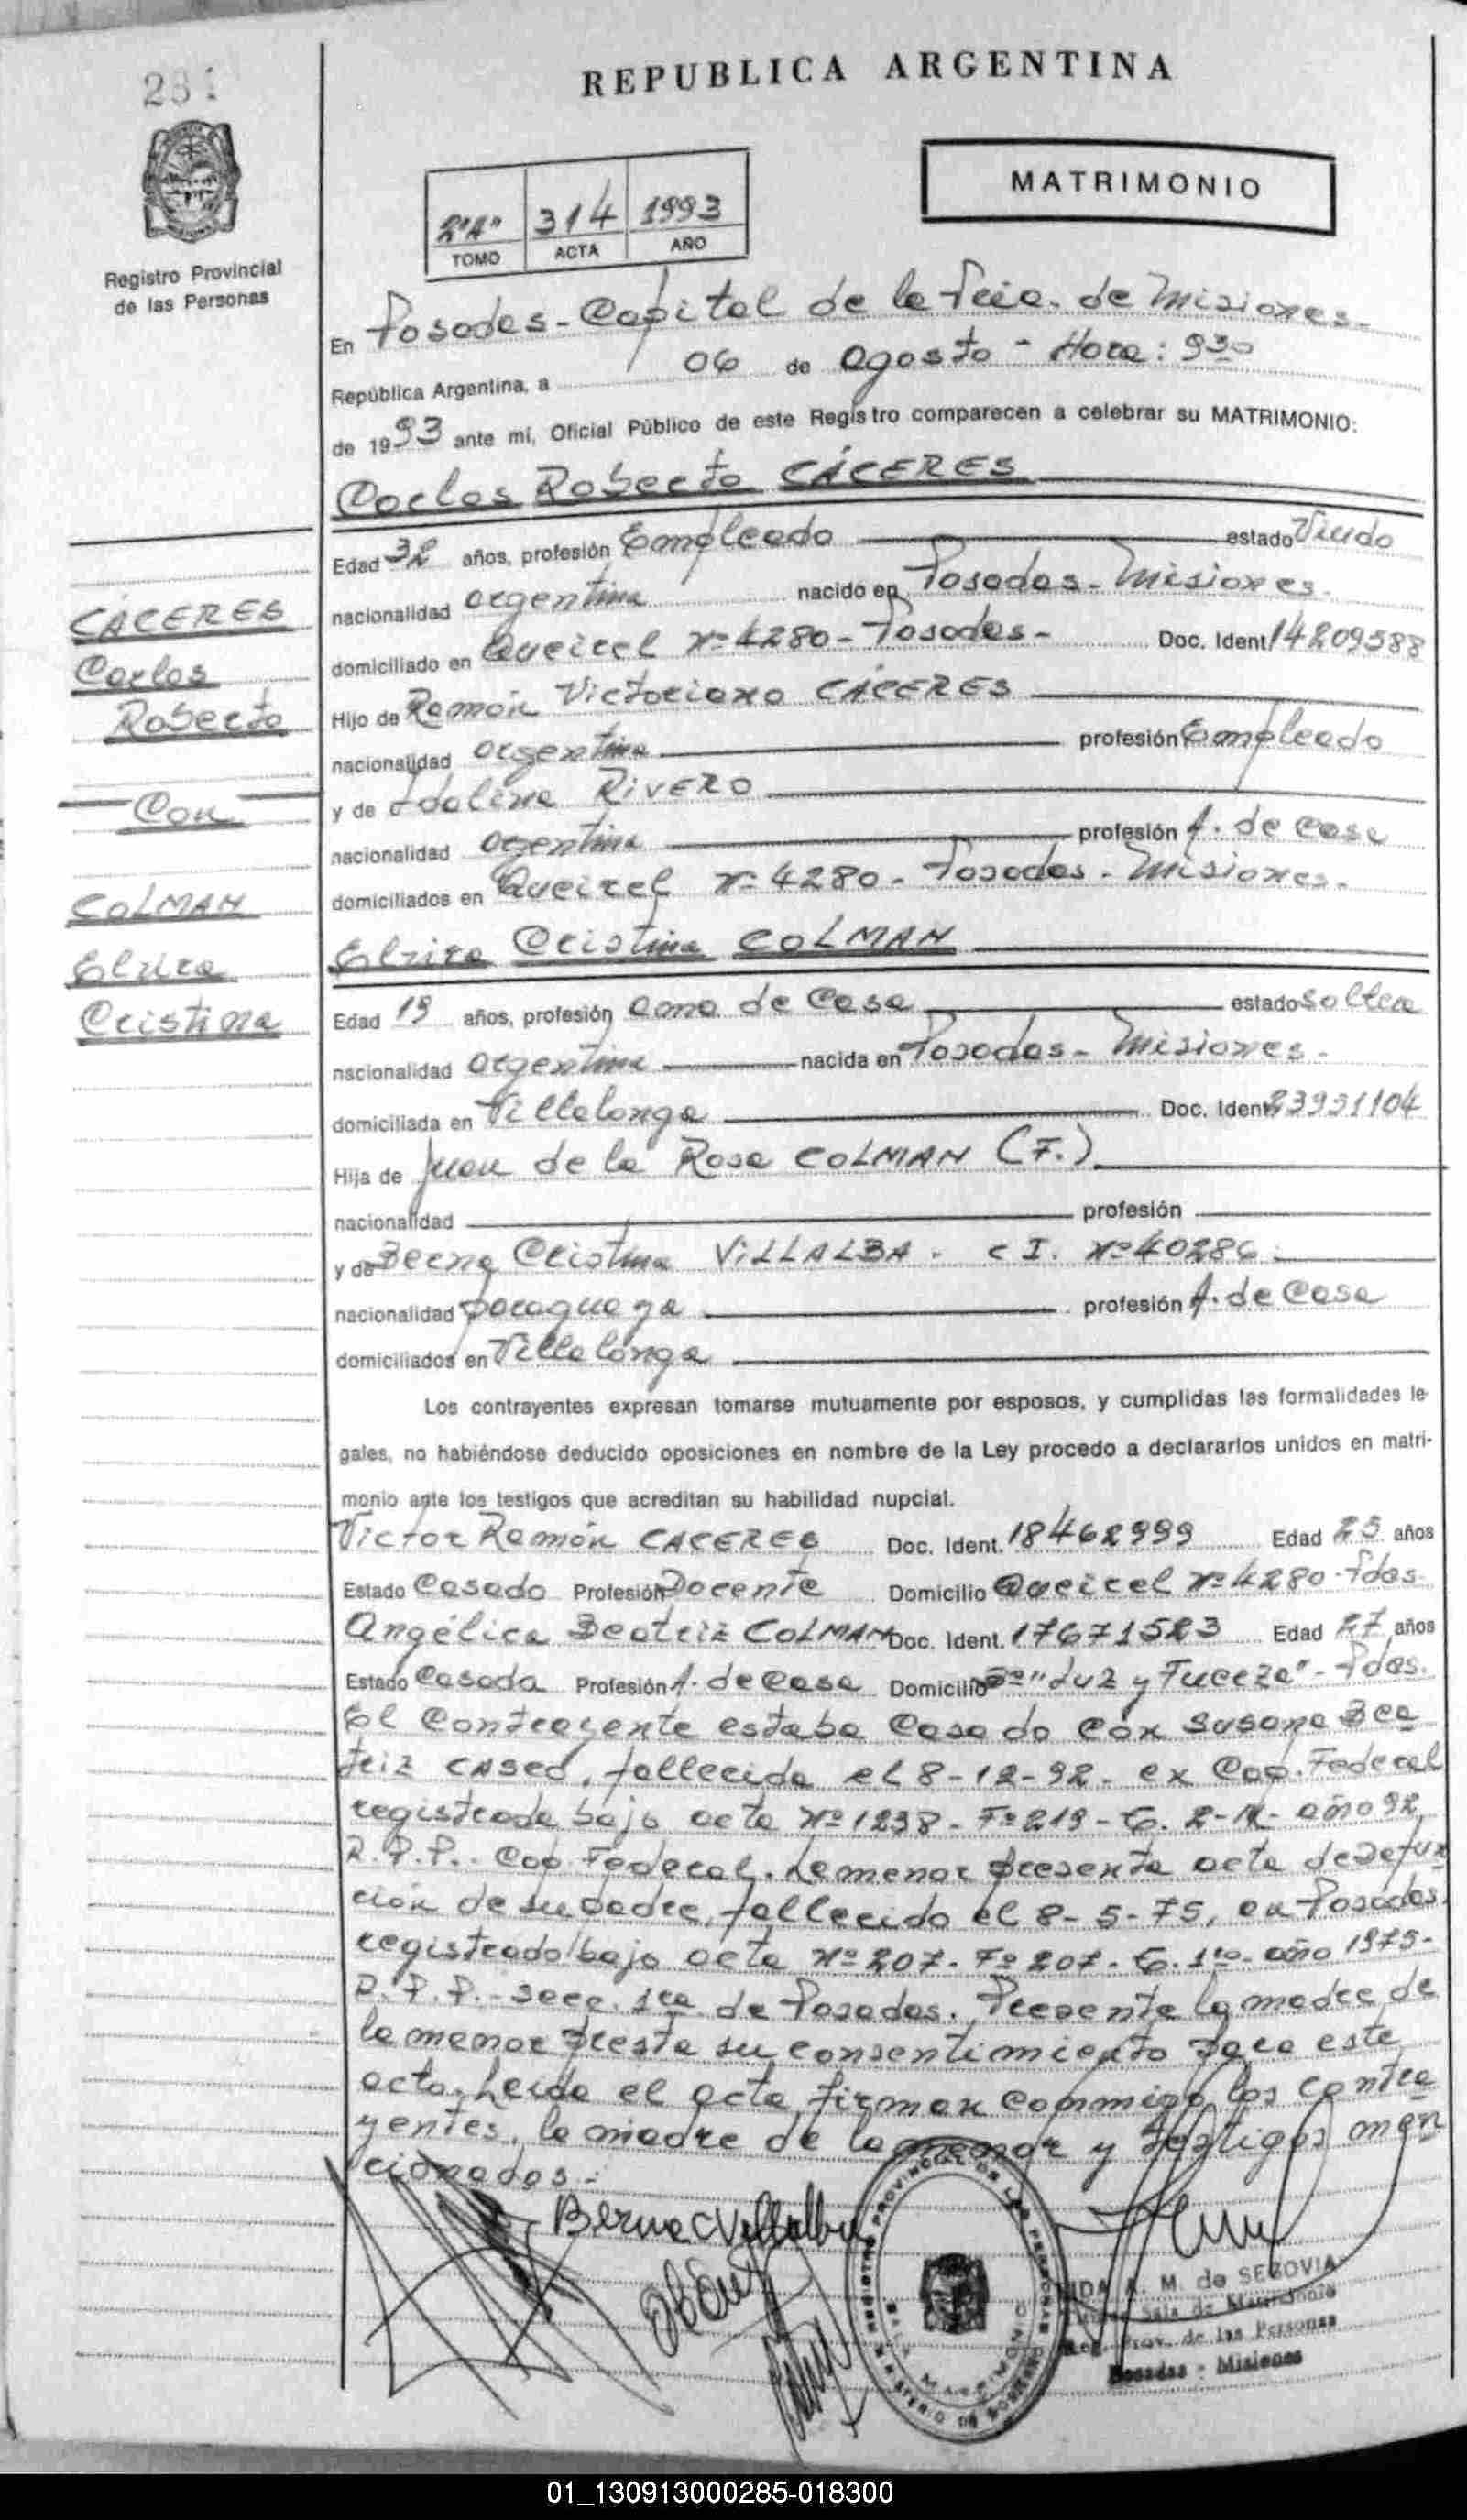 REPUBLICA ARGENTINA
MATRIMONIO
2º"A" 314 1993
TOMO ACTA AÑO
Registro Provincial
de las Personas
En Posadas - Capital de la Pcia. de Misiones -
República Argentina, a 06 de agosto - Hora: 9 30
de 1993 ante mí, Oficial Público de este Registro comparecen a celebrar su MATRIMONIO:
Carlos Roberto CÁCERES
Edad 32 años, profesión Empleado estado Viudo
nacionalidad argentina nacido en Posadas - Misiones.
domiciliado en Queirel nº 4280 - Posadas - Doc. Ident 14209588
Hijo de Ramón Victoriano CÁCERES
nacionalidad argentina profesión Empleado
y de Adalina RIVERO
nacionalidad argentina profesión A. de casa
domiciliados en Queirel nº 4280 - Posadas - Misiones.
Elzira Cristina COLMAN
Edad 19 años, profesión ama de Casa estado soltera
nacionalidad argentina nacida en Posadas - Misiones -
domiciliada en Villalonga Doc. Ident. 23991104
Hija de Juan de la Rosa COLMAN (F.)
nacionalidad profesión
y de Berna Cristina VILLALBA - C I. nº 40286
nacionalidad paraguaya profesión A. de Casa
domiciliados en Villalonga
Los contrayentes expresan tomarse mutuamente por esposos, y cumplidas las formalidades le-
gales, no habiéndose deducido oposiciones en nombre de la Ley procedo a declararlos unidos en matri-
monio ante los testigos que acreditan su habilidad nupcial.
Victor Ramón CACERES Doc. Ident. 18462999 Edad 25 años
Estado Casado Profesión Docente Domicilio Queirel nº 4280 - Pdas.
Angélica Beatriz COLMAN Doc. Ident. 17671523 Edad 27 años
Estado Casada Profesión A. de Casa Domicilio Bº "Luz y Fuerza" - Pdas.
El Contrayente estaba Casado con Susana Bea
triz CASCO, fallecida el 8-12-92 - ex Cap. Federal
registrada bajo acta nº 1238 - Fº 219 - T. 2- - año 92
R.P.P. - Cap. Federal. La menor presenta acta de Defun
ción de su padre, fallecido el 8-5-75, en Posadas.
registrado bajo acta nº 207 - Fº 207 - T. 1ro. año 1975 -
R.P.P. - Secc. 1ra de Posadas. Presente la madre de
la menor presta su consentimiento para este
acto. Leída el acta, firman conmigo los contra
yentes, la madre de la menor y testigos men
cionados.-
Berna C Villalba
REGISTRO PROVINCIAL DE LAS PERSONAS
SALA MATRIMONIO
MINISTERIO DE GOBIERNO
A. M. de SEGOVIA
Sala de Matrimonio
Reg. Prov. de las Personas
Posadas - Misiones
CÁCERES
Carlos
Roberto
Con
COLMAN
Elzira
Cristina
01_130913000285-018300